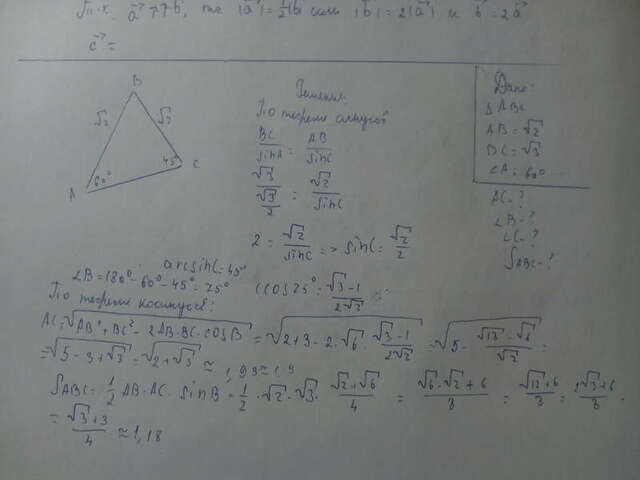 т.к. a⃗ ↑↑ b⃗, то |a⃗| = ½|b| или |b| = 2|a⃗| и b⃗ = 2a⃗
c⃗ =
B
√2 √3
A 60° 45° C
Решение:
По теореме синусов
BC/sinA = AB/sinC
√3/(√3/2) = √2/sinC
2 = √2/sinC => sinC = √2/2
Дано:
△ ABC
AB = √2
BC = √3
∠A = 60°
AC - ?
∠B - ?
∠C - ?
SABC - ?
arcsinC = 45°
∠B = 180° - 60° - 45° = 75°
(cos75° = (√3-1)/(2√2)
По теореме косинусов:
AC = √(AB² + BC² - 2AB·BC·cosB) = √(2+3-2·√6·(√3-1)/(2√2)) = √(5 - (√18-√6)/√2) =
= √(5-3+√3) = √(2+√3) ≈ 1,93 ≈ 1,9
SABC = 1/2 AB·AC·sinB = 1/2·√2·√3·(√2+√6)/4 = (√6·√2+6)/8 = (√12+6)/8 = (2√3+6)/8 =
= (√3+3)/4 ≈ 1,18